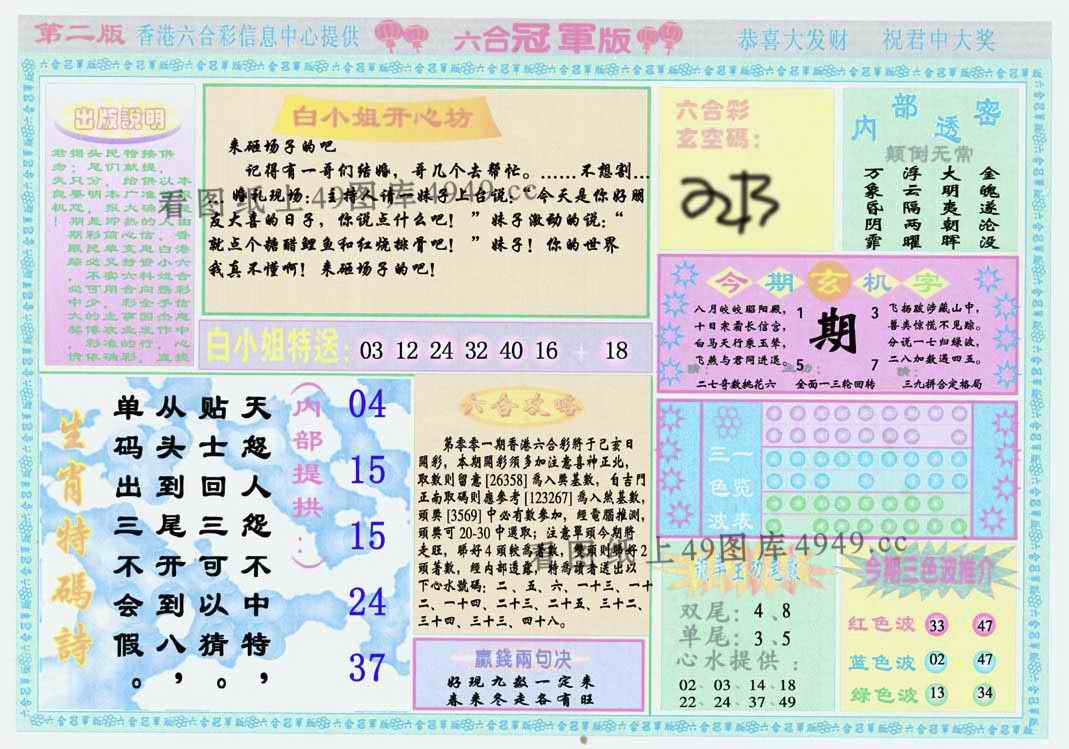 第二版
香港六合彩信息中心提供
六合冠軍版
恭喜大发财 祝君中大奖
出版説明
白小姐开心坊
来砸场子的吧
记得有一哥们结婚，哥几个去帮忙。……不想割…
… 婚礼现场：主持人请一妹子上台说：“今天是你好朋
友大喜的日子，你说点什么吧！”妹子激动的说：“
就点个糖醋鲤鱼和红烧排骨吧！”妹子！你的世界
我真不懂啊！来砸场子的吧！
白小姐特送：
03 12 24 32 40 16 + 18
六合彩
玄空碼：
内部透密
颠倒无常
金魄遂沦没
大明夷朝晖
浮云隔两曜
万象昏阴霏
今期玄机字
八月皎皎昭阳殿，
十日寒霜长信宫，
白马天行乘玉辇，
飞燕与君同进退。
1
期
3
5
7
飞扬跋涉藏山中，
兽类惊慌不见踪。
分说一七归绿波，
二八加数遇四五。
二七奇数桃花六
全面一三轮回转
三九拼合定格局
生肖特碼詩
天怒人怨不中特，
贴士回三可以猜。
从头到尾开到八，
单码出三不会假。
（内部提拱：）
04
15
15
24
37
六合攻略
第零零一期香港六合彩將于己亥日
開彩，本期開彩須多加注意喜神正北，
取數則留意[26358]為入奬基數，自吉門
正南取碼則應參考[123267]為入然基數，
頭奬[3569]中必有數參加，經電腦推測，
頭奬可20-30中選取；注意單頭今期將
走旺，睇好4頭較為著數，雙頭則睇好2
頭著數，經内部透露，特為讀者送出以
下心水號碼：二、五、六、一十三、一十
二、一十四、二十三、二十五、三十二、
三十四、三十三、四十八。
贏錢兩句决
好现九数一定来
春来冬走各有旺
三色波一览表
双尾：4、8
单尾：3、5
心水提供：
02、03、14、18
22、24、37、49
今期三色波推介
红色波 33 47
蓝色波 02 47
绿色波 13 34
看图纸上49图库4949.cc
看图纸上49图库4949.cc